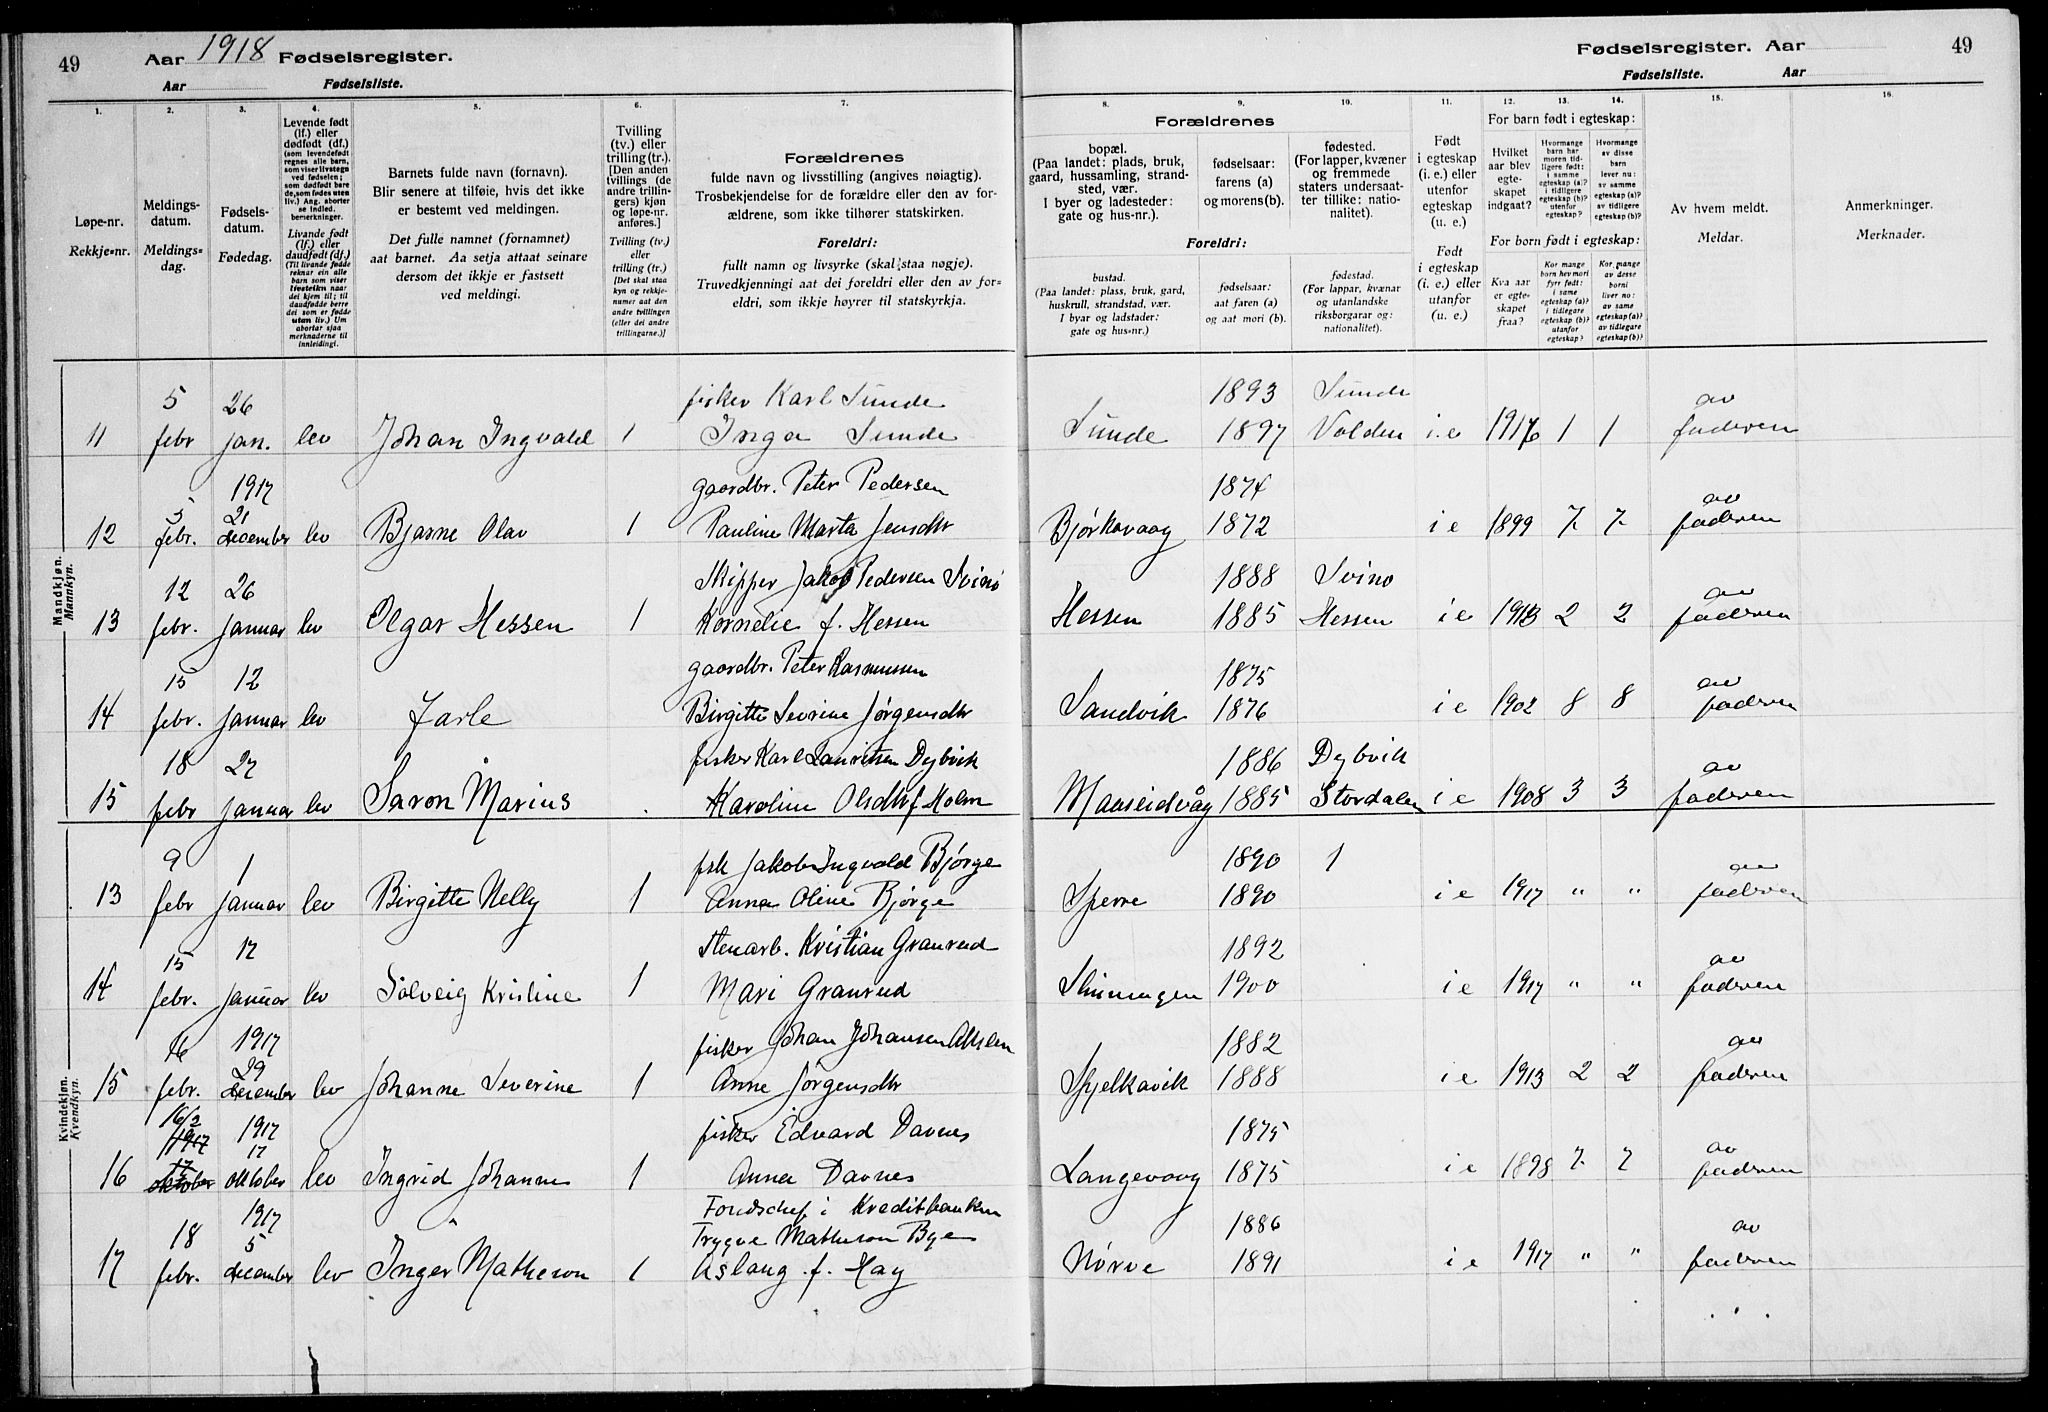 49 Aar 1918 Fødselsregister.
Aar Fødselsliste.
Fødselsregister. Aar 49
Fødselsliste. Aar
1. 2. 3. 4. 5. 6. 7.
8. 9. 10. 11. 12. 13. 14. 15. 16.
Løpe-nr.
Rekkje-nr.
Meldings-
datum.
Meldings-
dag.
Fødsels-
datum.
Fødedag.
Levende født
(lf.) eller
dødfødt (df.)
(som levendefødt
regnes alle barn,
som viser livstegn
ved fødselen;
som dødfødt bare
de, som fødes uten
liv.) Ang. aborter
se indled.
bemerkninger.
Livande født
(lf.) eller
daudfødt (df.)
(Til livande fødde
reknar ein alle
barn som viser
livsteikn naar
dei kjem til; til
daudfødde berre
dei som er fødde
utan liv.) Um
abortar sjaa
merknaderne til
innleidingi.
Barnets fulde navn (fornavn).
Blir senere at tilføie, hvis det ikke
er bestemt ved meldingen.
Det fulle namnet (fornamnet)
aat barnet. Aa setja attaat seinare
dersom det ikkje er fastsett
ved meldingi.
Tvilling
(tv.) eller
trilling (tr.).
[Den anden
tvillings (de
andre trillin-
gers) kjøn
og løpe-nr.
anføres.]
Tvilling (tv.)
eller
trilling (tr.)
[Det skal staa
kyn og rekkje-
numer aat den
andre tvillingen
(eller dei andre
trillingarne.)]
Forældrenes
fulde navn og livsstilling (angives nøiagtig).
Trosbekjendelse for de forældre eller den av for-
ældrene, som ikke tilhører statskirken.
Foreldri:
fullt namn og livsyrke (skal staa nøgje).
Truvedkjenningi aat dei foreldri eller den av for-
eldri, som ikkje høyrer til statskyrkja.
Forældrenes
bopæl.
(Paa landet: plads, bruk,
gaard, hussamling, strand-
sted, vær.
I byer og ladesteder:
gate og hus-nr.).
fødselsaar:
farens (a)
og morens (b).
fødested.
(For lapper, kvæner
og fremmede
staters undersaat-
ter tillike: natio-
nalitet).
Foreldri:
bustad.
(Paa landet: plass, bruk, gard,
huskrull, strandstad, vær.
I byar og ladstader:
gate og hus-nr.)
fødselsaar:
aat faren (a)
og aat mori (b).
fødestad.
(For lappar, kvænar
og utanlandske
riksborgarar og:
nationalitet).
Født
i egteskap
(i. e.) eller
utenfor
egteskap
(u. e.)
Født
i egteskap
(i. e.) eller
utanfor
(u. e.)
For barn født i egteskap:
Hvilket
aar blev
egte-
skapet
indgaat?
Hvormange
barn har
moren tid-
ligere født:
i samme
egteskap (a)?
i tidligere
egteskap (b)?
utenfor
egteskap?
Hvormange
av disse
barn
lever nu:
av samme
egteskap (a)?
av tidligere
egteskap (b)?
For born født i egteskap:
Kva aar
er egte-
skapet
fraa?
Kor mange
born hev mori
fyrr født:
i same
egteskap (a)?
i tidlegare
egteskap (b)?
utanfor
egteskap?
Kor mange
av desse
borni
liver no:
av same
egteskap (a)?
av tidlegare
egteskap (b)?
Av hvem meldt.
Meldar.
Anmerkninger.
Merknader.
Mandkjøn.
Mannkyn.
5 26 fisker Karl Sunde 1893 Sunde av
11 febr jan. lev Johan Ingvald 1 Inga Sunde Sunde 1897 Volden i.e 1916 1 1 faderen
1917 gaardbr. Peter Pedersen 1874
5 21 av
12 febr. december lev Bjarne Olav 1 Pauline Marta Jensdtr Bjørkavaag 1872 i e 1899 7 7 faderen
12 26 Skipper Jakob Pedersen Svinø 1888 Svinø av
13 febr. januar lev Olgar Hessen 1 Kornelie f. Hessen Hessen 1885 Hessen i e 1913 2 2 faderen
15 12 gaardbr. Peter Rasmussen 1875 av
14 febr. januar lev Jarle Birgitte Severine Jørgensdtr Sandvik 1876 i e 1902 8 8 faderen
18 27 fisker Karl Lauritsen Dybvik 1886 Dybvik av
15 febr januar lev Saron Marius Karoline Olsdtr f Holm Maaseidvåg 1885 Stordalen i e 1908 3 3 faderen
Kvindekjøn.
Kvendkyn.
9 1 fisk Jakob Ingvald Bjørge 1890 1 av
13 febr januar lev Birgitte Nelly 1 Anna Oline Bjørge Sperre 1890 i e 1917 " " faderen
15 17 Stenarb. Kristian Granrud 1892 av
14 febr. januar lev Solveig Kristine 1 Mari Granrud 1900 i e 1917 " " faderen
16 1917 fisker Johan Johansen 1882 av
29
15 febr. december lev Johanne Severine 1 Anne Jørgensdtr Spjelkavik 1888 i e 1913 2 2 faderen
16/2 1917 fisker Edvard Davnes 1875
1917
17 17 av
16 oktober oktober lev Ingrid Johanne 1 Anna Davnes Langevaag 1875 i e 1898 7 7 faderen
1917 Fondschef i Kreditbanken
18 5 Trygve Matheson Bye 1886 av
17 febr. december lev Inger Matheson 1 Aslaug f. Hay Nørve 1891 i e 1917 " " faderen